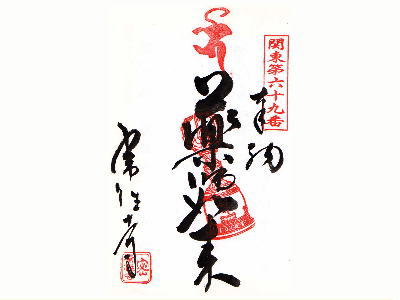 関東第六十九番
奉納
藥師如来
常性寺